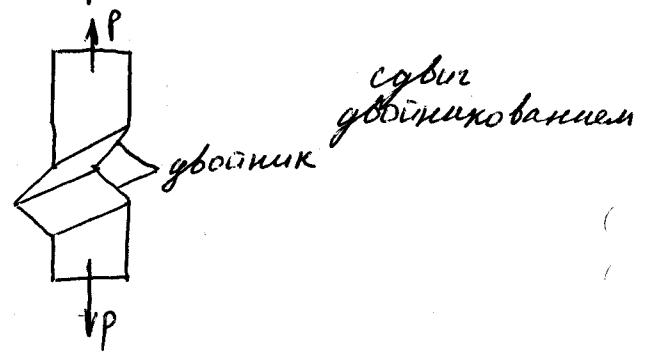 P
сдвиг
двойникованием
двойник
P